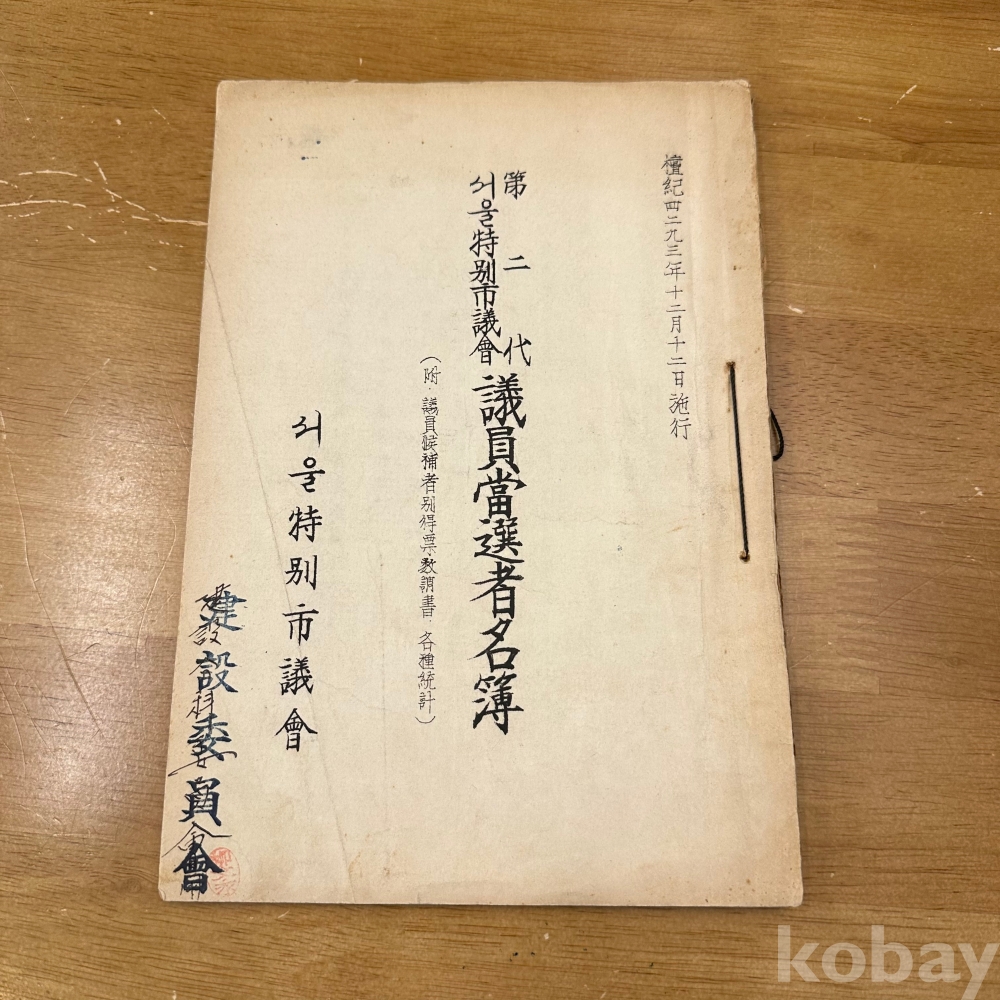 檀紀四二九三年十二月十二日 施行
第二代
서울特別市議會 議員當選者名簿
(附·議員候補者別得票數調書·各種統計)
서울特別市議會
建設委員會
kobay